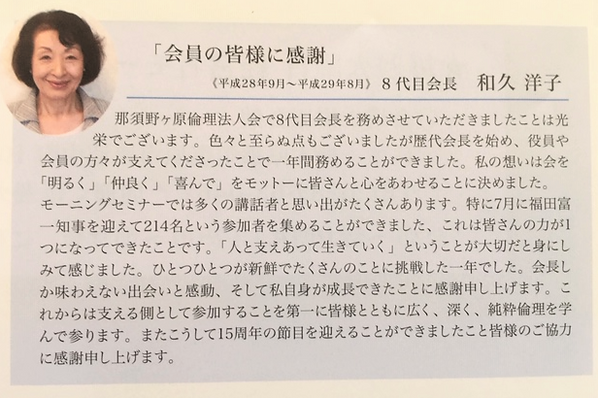 「会員の皆様に感謝」
《平成28年9月～平成29年8月》 8代目会長 和久 洋子
那須野ヶ原倫理法人会で8代目会長を務めさせていただきましたことは光
栄でございます。色々と至らぬ点もございましたが歴代会長を始め、役員や
会員の方々が支えてくださったことで一年間務めることができました。私の想いは会を
「明るく」「仲良く」「喜んで」をモットーに皆さんと心をあわせることに決めました。
モーニングセミナーでは多くの講話者と思い出がたくさんあります。特に7月に福田富
一知事を迎えて214名という参加者を集めることができました、これは皆さんの力が1
つになってできたことです。「人と支えあって生きていく」ということが大切だと身にし
みて感じました。ひとつひとつが新鮮でたくさんのことに挑戦した一年でした。会長し
か味わえない出会いと感動、そして私自身が成長できたことに感謝申し上げます。こ
れからは支える側として参加することを第一に皆様とともに広く、深く、純粋倫理を学
んで参ります。またこうして15周年の節目を迎えることができましたこと皆様のご協力
に感謝申し上げます。